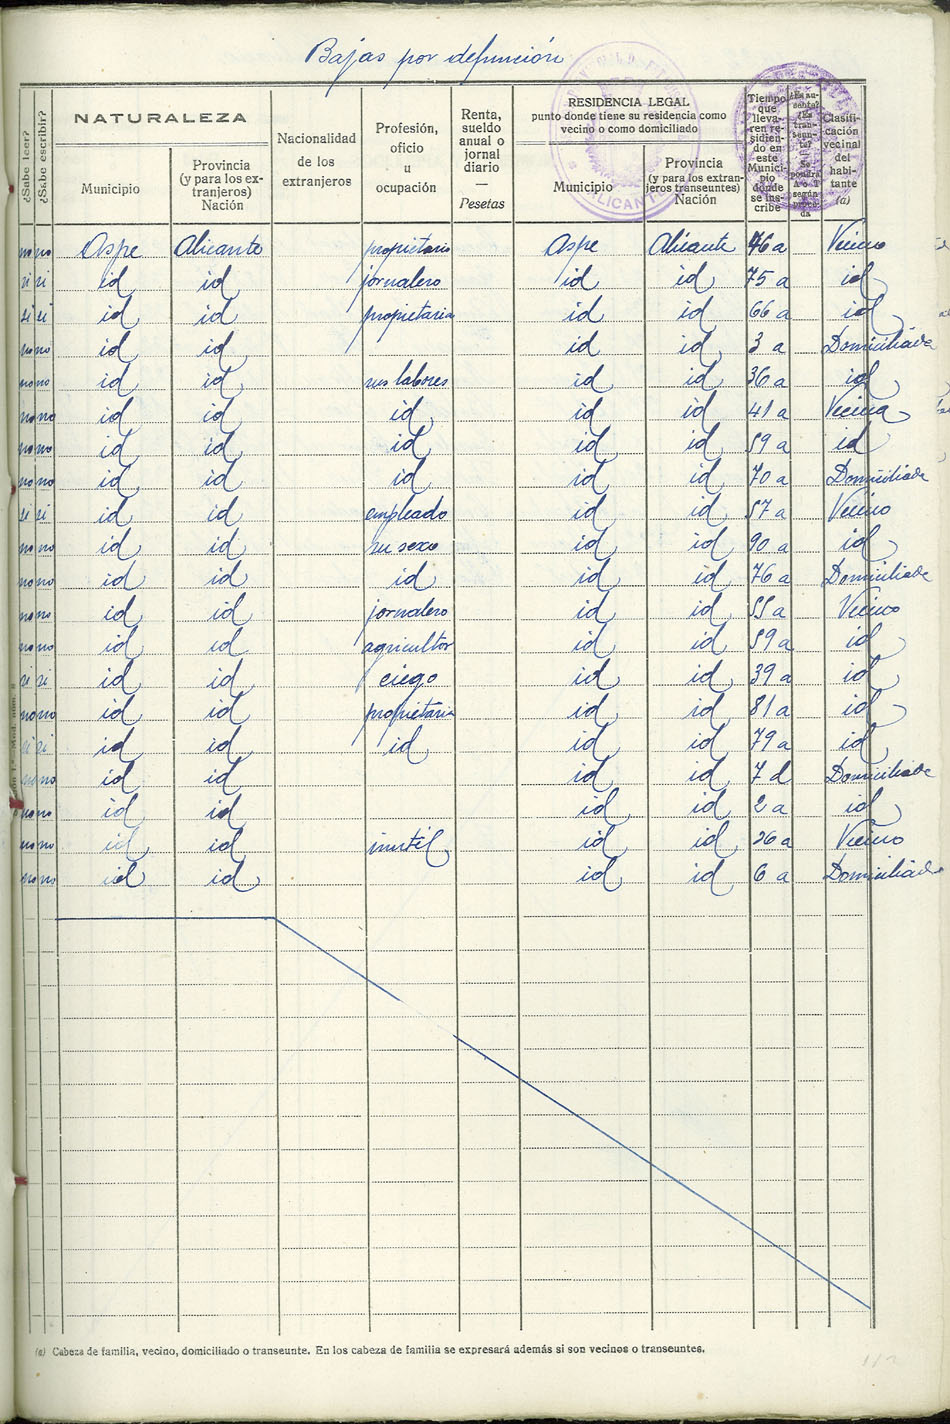 Bajas por defunción
¿Sabe leer?
¿Sabe escribir?
NATURALEZA
Municipio
Provincia
(y para los ex-
tranjeros)
Nación
Nacionalidad
de los
extranjeros
Profesión,
oficio
u
ocupación
Renta,
sueldo
anual o
jornal
diario
—
Pesetas
RESIDENCIA LEGAL
punto donde tiene su residencia como
vecino o como domiciliado
Municipio
Provincia
(y para los extran-
jeros transeuntes)
Nación
Tiempo
que
lleva-
ren re-
sidien-
do en
este
Munici-
pio
donde
se ins-
cribe
Clasifi-
cación
vecinal
del
habi-
tante
(a)
no no Aspe Alicante propietario Aspe Alicante 46 a Vecino
si si id id jornalero id id 75 a id
si si id id propietaria id id 66 a id
no no id id id id 3 a Domiciliada
no no id id sus labores id id 36 a id
no no id id id id id 41 a Vecina
no no id id id id id 59 a id
no no id id id id id 70 a Domiciliada
si si id id empleado id id 57 a Vecino
no no id id su sexo id id 90 a id
no no id id id id id 76 a Domiciliada
no no id id jornalero id id 55 a Vecino
no no id id agricultor id id 59 a id
si si id id ciego id id 39 a id
no no id id propietaria id id 81 a id
si si id id id id id 79 a id
no no id id id id 7 d Domiciliado
no no id id id id 2 a id
no no id id inutil id id 26 a Vecino
no no id id id id 6 a Domiciliado
(a) Cabeza de familia, vecino, domiciliado o transeunte. En los cabeza de familia se expresará además si son vecinos o transeuntes.